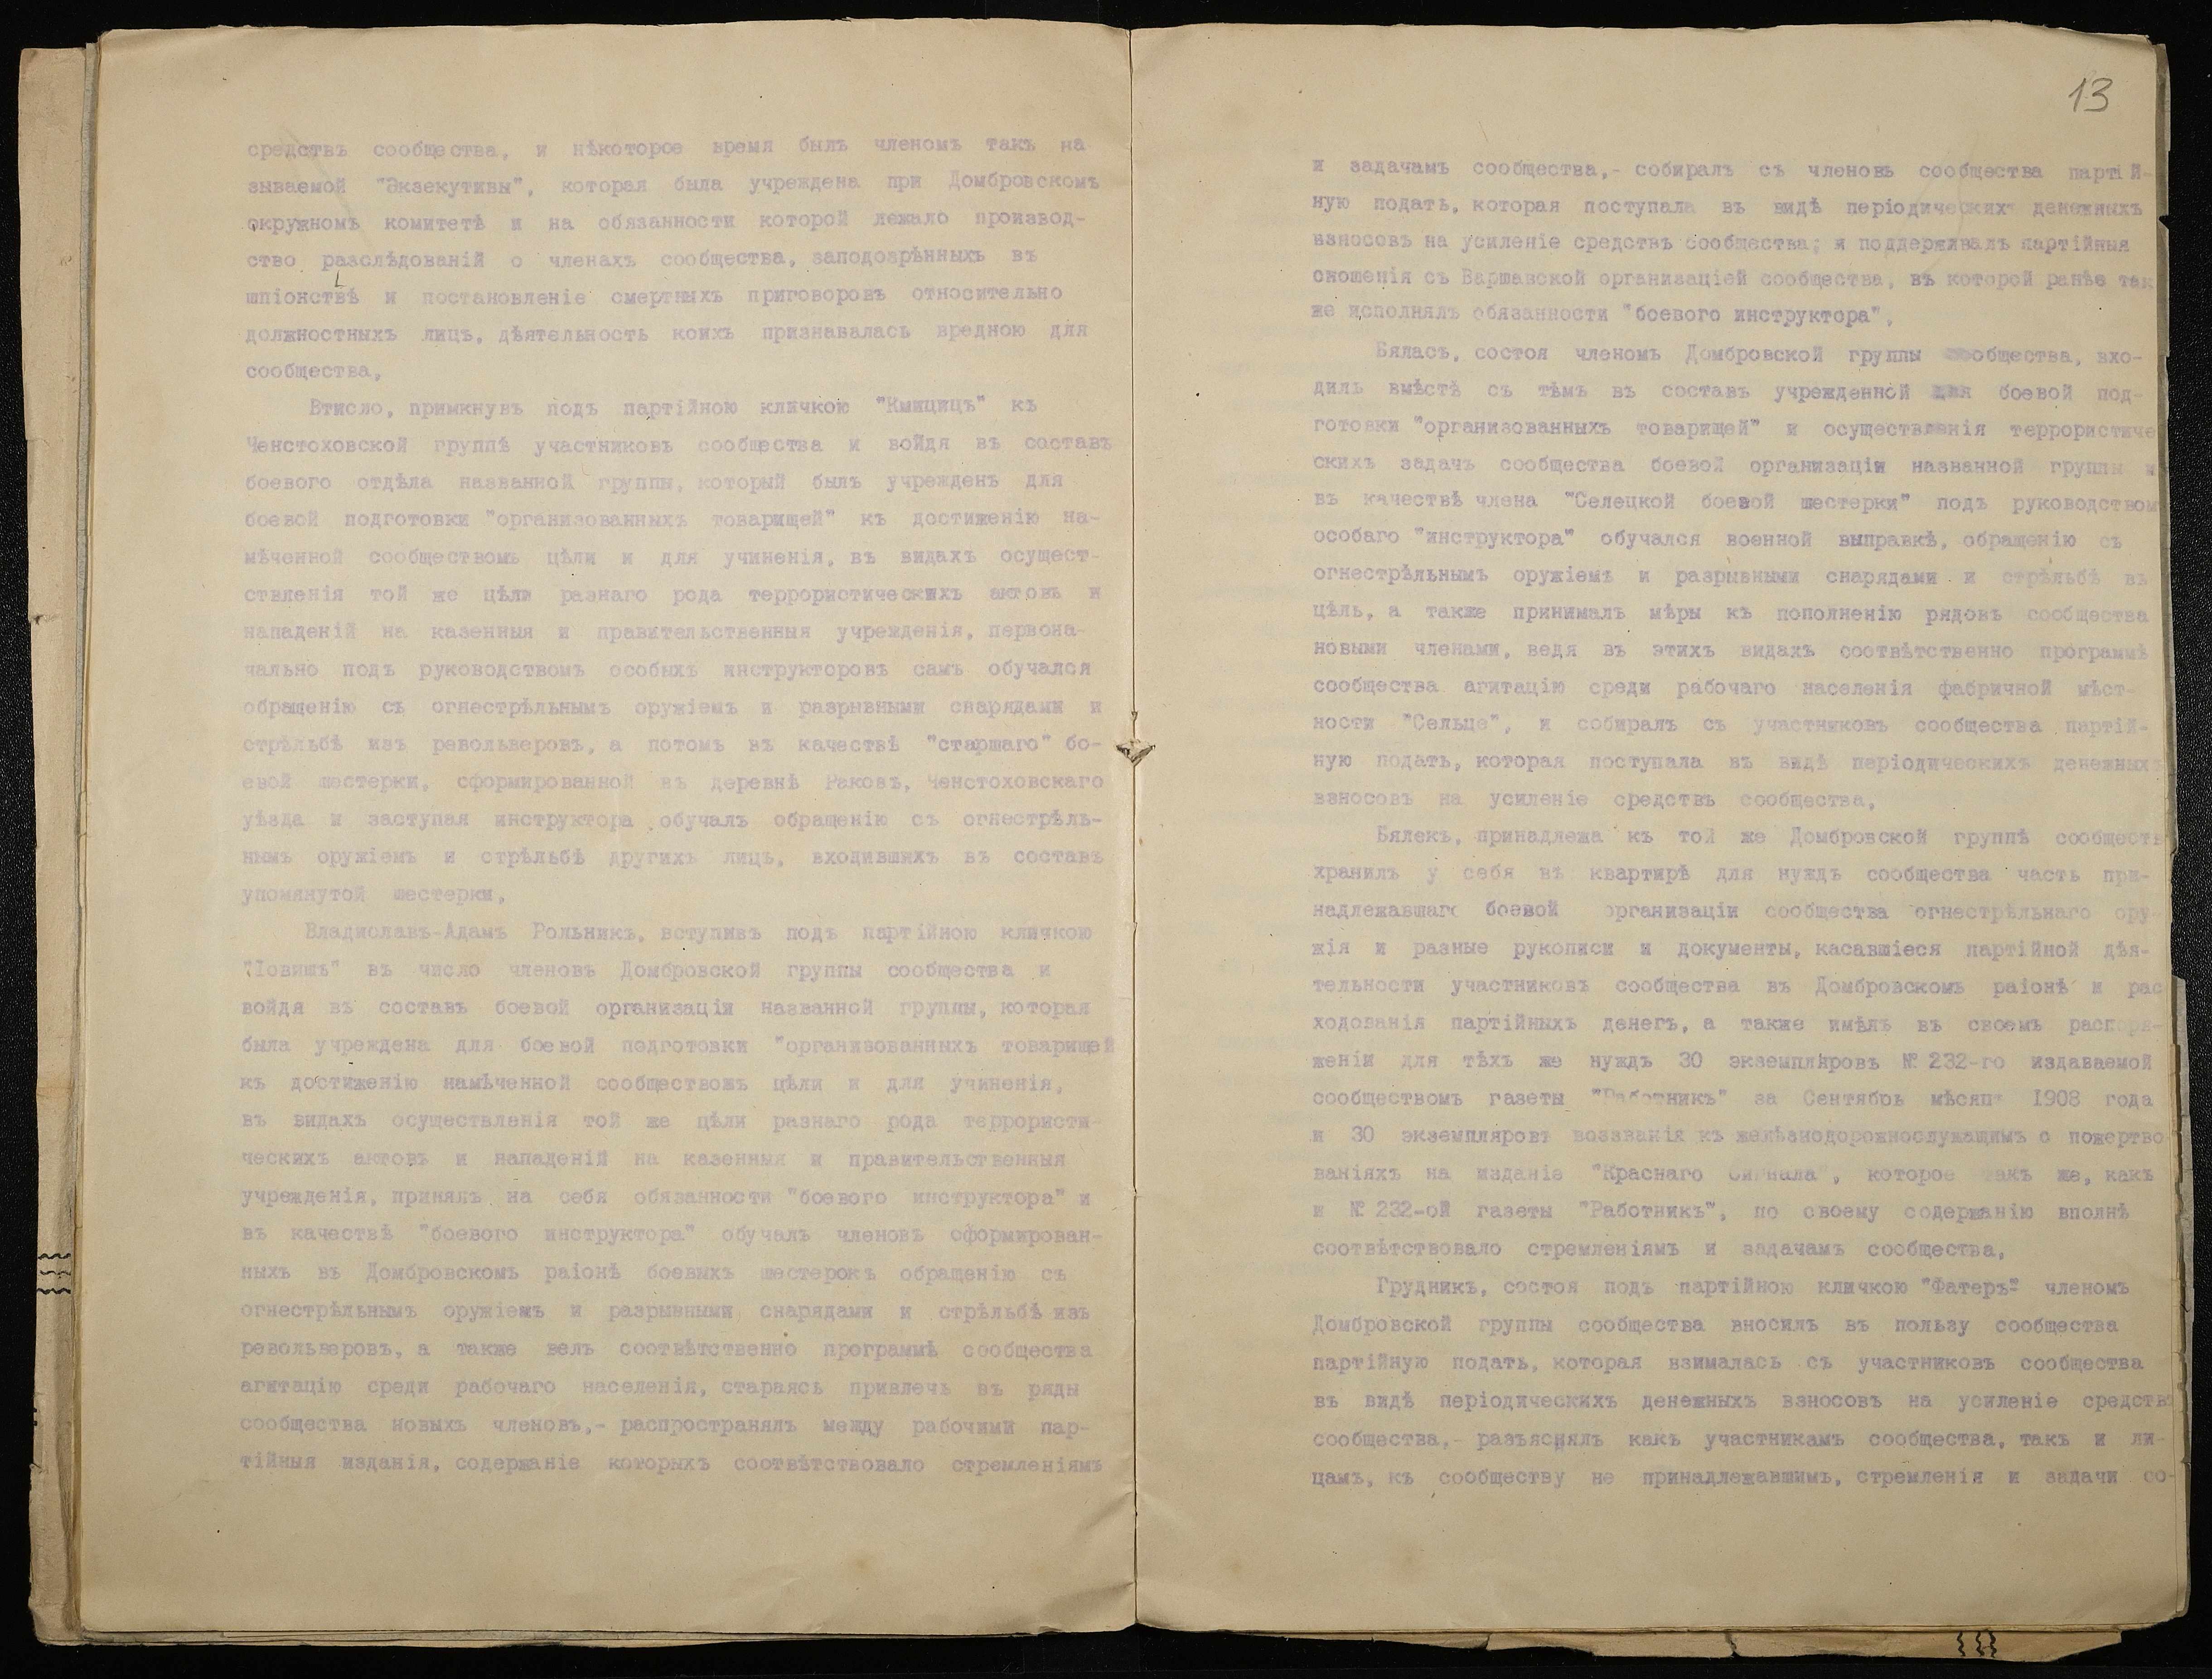 средствъ сообщества, и нѣкоторое время былъ членомъ такъ на
зываемой "Экзекутивы", которая была учреждена при Домбровскомъ
окружномъ комитетѣ и на обязанности которой лежало производ-
ство разслѣдованій о членахъ сообщества, заподозрѣнныхъ въ
шпіонствѣ и постановленіе смертныхъ приговоровъ относительно
должностныхъ лицъ, дѣятельность коихъ признавалась вредною для
сообщества,
Втисло, примкнувъ подъ партійною кличкою "Кмицицъ" къ
Ченстоховской группѣ участниковъ сообщества и войдя въ составъ
боевого отдѣла названной группы, который былъ учрежденъ для
боевой подготовки "организованныхъ товарищей" къ достиженію на-
мѣченной сообществомъ цѣли и для учиненія, въ видахъ осущест-
ствленія той же цѣли разнаго рода террористическихъ актовъ и
нападеній на казенныя и правительственныя учрежденія, первона-
чально подъ руководствомъ особыхъ инструкторовъ самъ обучался
обращенію съ огнестрѣльнымъ оружіемъ и разрывными снарядами и
стрѣльбѣ изъ револьверовъ, а потомъ въ качествѣ "старшаго" бо-
евой шестерки, сформированной въ деревнѣ Раковъ, Ченстоховскаго
уѣзда и заступая инструктора обучалъ обращенію съ огнестрѣль-
нымъ оружіемъ и стрѣльбѣ другихъ лицъ, входившихъ въ составъ
упомянутой шестерки,
Владиславъ-Адамъ Рольникъ, вступивъ подъ партійною кличкою
"Ловишъ" въ число членовъ Домбровской группы сообщества и
войдя въ составъ боевой организаціи названной группы, которая
была учреждена для боевой подготовки "организованныхъ товарищей
къ достиженію намѣченной сообществомъ цѣли и для учиненія,
въ видахъ осуществленія той же цѣли разнаго рода террористи-
ческихъ актовъ и нападеній на казенныя и правительственныя
учрежденія, принялъ на себя обязанности "боевого инструктора" и
въ качествѣ "боевого инструктора" обучалъ членовъ сформирован-
ныхъ въ Домбровскомъ раіонѣ боевыхъ шестерокъ обращенію съ
огнестрѣльнымъ оружіемъ и разрывными снарядами и стрѣльбѣ изъ
револьверовъ, а также велъ соотвѣтственно программѣ сообщества
агитацію среди рабочаго населенія, стараясь привлечь въ ряды
сообщества новыхъ членовъ,- распространялъ между рабочими пар-
тійныя изданія, содержаніе которыхъ соотвѣтствовало стремленіямъ
13
и задачамъ сообщества,- собиралъ съ членовъ сообщества партій-
ную подать, которая поступала въ видѣ періодическихъ денежныхъ
взносовъ на усиленіе средствъ сообщества; и поддерживалъ партійныя
сношенія съ Варшавской организаціей сообщества, въ которой ранѣе так
же исполнялъ обязанности "боевого инструктора",
Бяласъ, состоя членомъ Домбровской группы сообщества, вхо-
дилъ вмѣстѣ съ тѣмъ въ составъ учрежденной для боевой под-
готовки "организованныхъ товарищей" и осуществленія террористиче
скихъ задачъ сообщества боевой организаціи названной группы и
въ качествѣ члена "Селецкой боевой шестерки" подъ руководством
особаго "инструктора" обучался военной выправкѣ, обращенію съ
огнестрѣльнымъ оружіемъ и разрывными снарядами и стрѣльбѣ въ
цѣль, а также принималъ мѣры къ пополненію рядовъ сообщества
новыми членами, ведя въ этихъ видахъ соотвѣтственно программѣ
сообщества агитацію среди рабочаго населенія фабричной мѣст-
ности "Сельце", и собиралъ съ участниковъ сообщества партій-
ную подать, которая поступала въ видѣ періодическихъ денежныхъ
взносовъ на усиленіе средствъ сообщества,
Бялекъ, принадлежа къ той же Домбровской группѣ сообществ
хранилъ у себя въ квартирѣ для нуждъ сообщества часть при-
надлежавшаго боевой организаціи сообщества огнестрѣльнаго ору-
жія и разные рукописи и документы, касавшіеся партійной дѣя-
тельности участниковъ сообщества въ Домбровскомъ раіонѣ и рас
ходованія партійныхъ денегъ, а также имѣлъ въ своемъ распоря-
женіи для тѣхъ же нуждъ 30 экземпляровъ № 232-го издаваемой
сообществомъ газеты "Работникъ" за Сентябрь мѣсяцъ 1908 года
и 30 экземпляровъ воззванія къ желѣзнодорожнослужащимъ о пожертво
ваніяхъ на изданіе "Краснаго Сигнала", которое такъ же, какъ
и № 232-ой газеты "Работникъ", по своему содержанію вполнѣ
соотвѣтствовало стремленіямъ и задачамъ сообщества,
Грудникъ, состоя подъ партійною кличкою "Фатеръ" членомъ
Домбровской группы сообщества вносилъ въ пользу сообщества
партійную подать, которая взималась съ участниковъ сообщества
въ видѣ періодическихъ денежныхъ взносовъ на усиленіе средствъ
сообщества,- разъяснялъ какъ участникамъ сообщества, такъ и ли-
цамъ, къ сообществу не принадлежавшимъ, стремленія и задачи со-